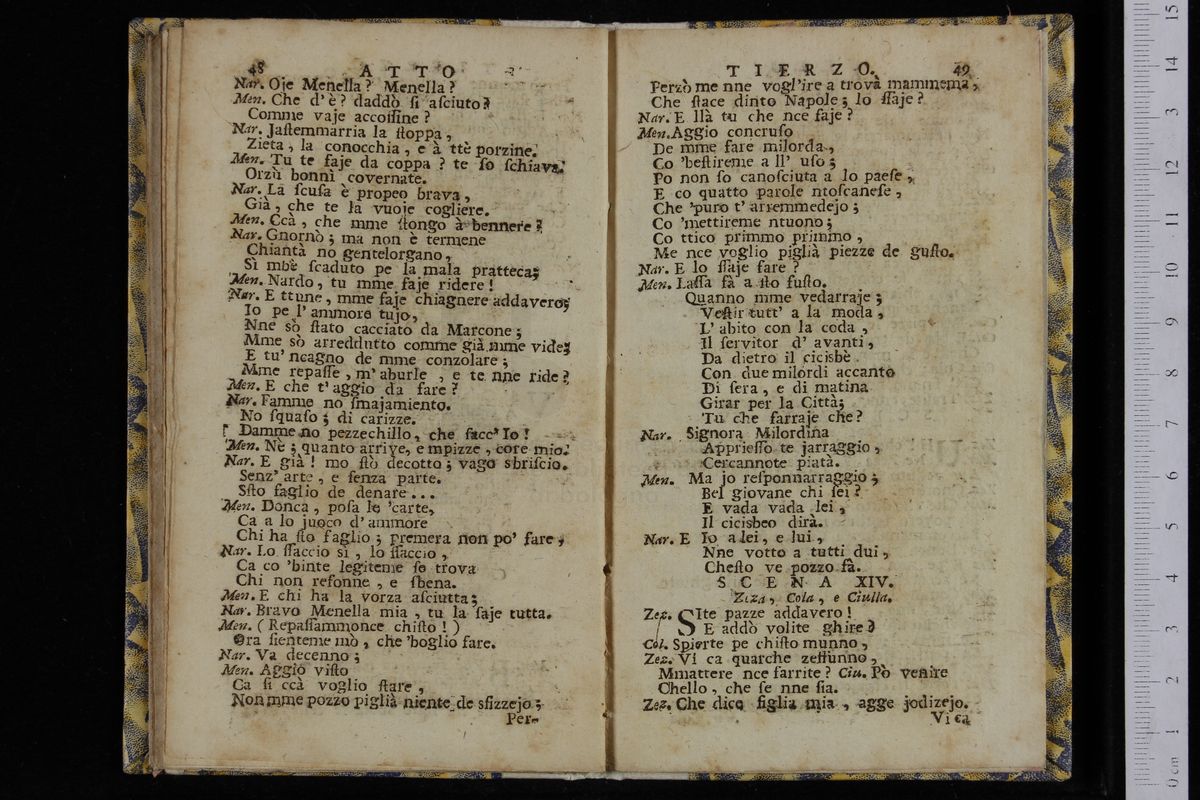 48 ATTO
Nar. Oje Menella? Menella?
Men. Che d'è? daddò si aſciuto?
Comme vaje accoſſine?
Nar. Jaſtemmarria la ſtoppa,
Zieta, la conocchia, e à ttè porzine.
Men. Tu te faje da coppa? te ſo ſchiava.
Orzù bonnì covernate.
Nar. La ſcuſa è propeo brava,
Già, che te la vuoje cogliere.
Men. Ccà, che mme ſtongo à bennere?
Nar. Gnornò; ma non è termene
Chiantà no gentelorgano,
Sì mbè ſcaduto pe la mala pratteca;
Men. Nardo, tu mme faje ridere!
Nar. E ttune, mme faje chiagnere addavero;
Io pe l'ammore tujo,
Nne sò ſtato cacciato da Marcone;
Mme sò arreddutto comme già mme vide;
E tu' ncagno de mme conzolare;
Mme repaſſe, m'aburle, e te nne ride?
Men. E che t'aggio da fare?
Nar. Famme no ſmajamiento.
No ſquaſo; di carizze.
Damme no pezzechillo, che ſacc' Io!
Men. Nè; quanto arrive, e mpizze, core mio.
Nar. E già! mo ſtò decotto; vago sbriſcio.
Senz' arte, e ſenza parte.
Sſto faglio de denare...
Men. Donca, poſa le 'carte,
Ca a lo juoco d'ammore
Chi ha ſto faglio; premera non po' fare,
Nar. Lo ſſaccio sì, lo ſſaccio,
Ca co 'binte legiteme ſe trova
Chi non reſonne, e ſbena.
Men. E chi ha la vorza aſciutta;
Nar. Bravo Menella mia, tu la ſaje tutta.
Men. (Repaſſammonce chiſto!)
Ora ſienteme mò, che 'boglio fare.
Nar. Va decenno;
Men. Aggio viſto
Ca ſi ccà voglio ſtare,
Non mme pozzo piglià niente de sfizzejo;
Per-
TIERZO. 49
Perzò me nne vogl'ire a trovà mammema,
Che ſtace dinto Napole; lo ſſaje?
Nar. E llà tu che nce faje?
Men. Aggio concruſo
De mme fare milorda,
Co 'beſtireme a ll' uſo;
Po non ſo canoſciuta a lo paeſe,
E co quatto parole ntoſcaneſe,
Che 'puro t'arremmedejo;
Co 'mettireme ntuono;
Co ttico primmo primmo,
Me nce voglio piglià piezze de guſto.
Nar. E lo ſſaje fare?
Men. Laſſa fà a ſto fuſto.
Quanno mme vedarraje;
Veſtir tutt' a la moda,
L'abito con la coda,
Il ſervitor d'avanti,
Da dietro il cicisbè
Con due milordi accanto
Di ſera, e di matina
Girar per la Città;
Tu che farraje che?
Nar. Signora Milordina
Apprieſſo te jarraggio,
Cercannote piatà.
Men. Ma jo reſponnarraggio;
Bel giovane chi ſei?
E vada vada lei,
Il cicisbeo dirà.
Nar. E Io a lei, e lui,
Nne votto a tutti dui,
Cheſto ve pozzo fà.
SCENA XIV.
Zeza, Cola, e Ciulla.
Zez. SIte pazze addavero!
E addò volite ghire?
Col. Spierte pe chiſto munno,
Zez. Vi ca quarche zeffunno,
Mmattere nce farrite? Ciu. Pò venire
Chello, che ſe nne ſia.
Zez. Che dico figlia mia, agge jodizejo.
Vi ca